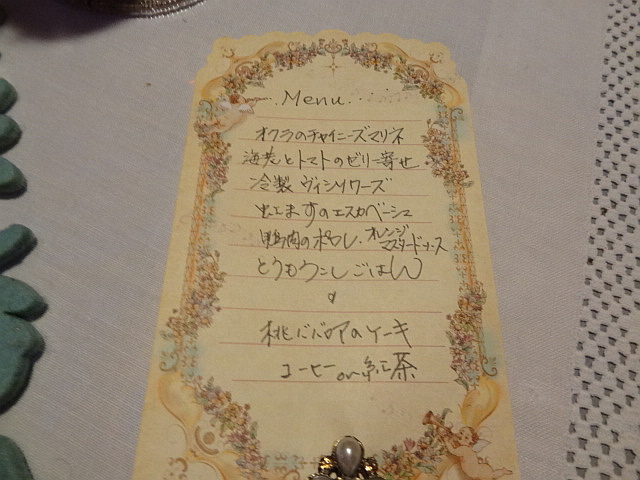 Menu
オクラのチャイニーズマリネ
海老とトマトのゼリー寄せ
冷製 ヴィシソワーズ
虹ますのエスカベーシュ
鴨肉のポワレ・オレンジマスタードソース
とうもろこしごはん
桃ババロアのケーキ
コーヒー or 紅茶